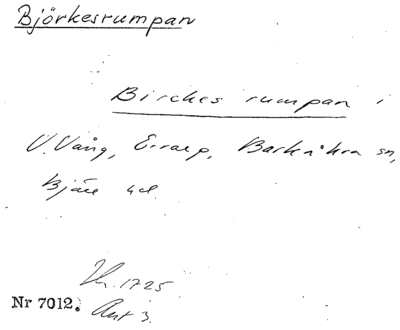 Björkesrumpan
Birckes rumpan i
V. Vång, Errarp, Barkåkra sn,
Bjäre hd.
1725
Nr 7012. Akt 3.